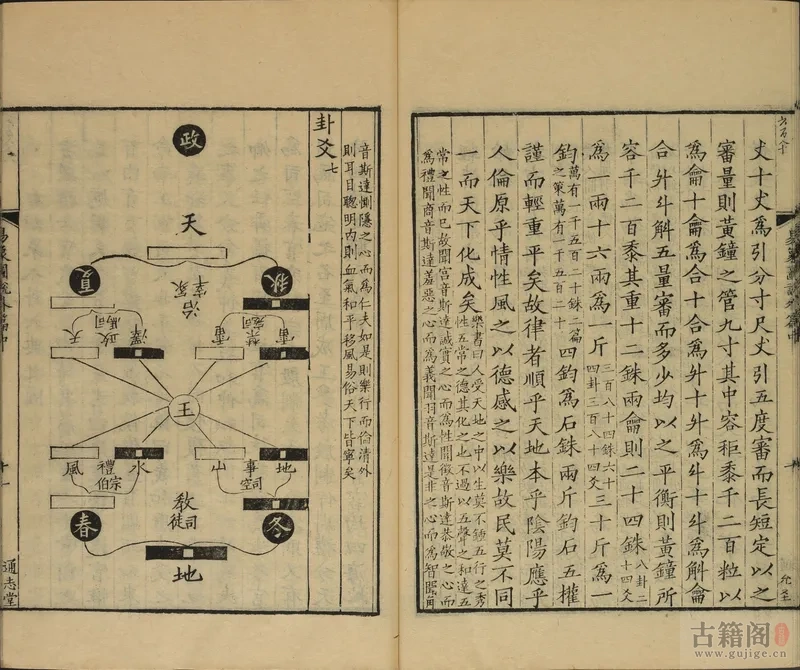 丈十丈爲引分寸尺丈引五度審而長短定以之
審量則黃鐘之管九寸其中容秬黍千二百粒以
爲龠十龠爲合十合爲升十升爲斗十斗爲斛龠
合升斗斛五量審而多少均以之平衡則黃鐘所
容千二百黍其重十二銖兩龠則二十四銖八卦二十四爻
爲一兩十六兩爲一斤三百八十四銖六十四卦三百八十四爻三十斤爲一
鈞萬有一千五百二十銖二篇之策萬有一千五百二十四鈞爲石銖兩斤鈞石五權
謹而輕重平矣故律者順乎天地本乎陰陽應乎
人倫原乎情性風之以德感之以樂故民莫不同
一而天下化成矣樂書曰人受天地之中以生莫不鍾五行之秀性五常之德其化之也不過以五聲之和達五
常之性而已故聞宮音斯達誠實之心而爲性聞徵音斯達恭敬之心而
爲禮聞商音斯達羞惡之心而爲義聞羽音斯達是非之心而爲智聞角
音斯達惻隱之心而爲仁夫如是則樂行而倫清外
則耳目聰明内則血氣和平移風易俗天下皆寧矣
卦爻七
政
天
秋
冢宰
治
夏
雷
司寇
禁
雷
澤
司馬
政
天
王
地
事
司空
山
水
禮
宗伯
風
冬
教
司徒
春
地
通志堂
古籍阁
www.gujige.cn